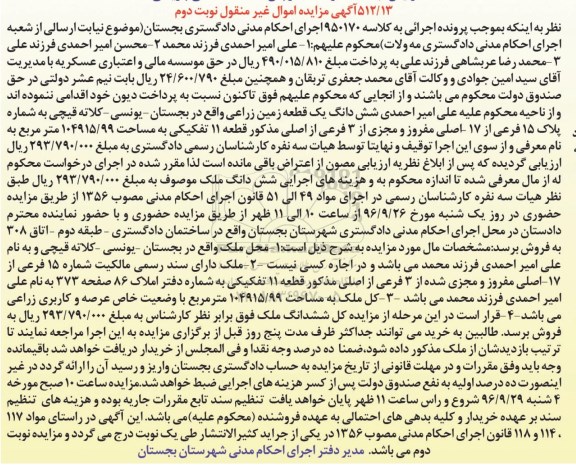 ۵۱۲/۱۳آگهی مزایده اموال غیر منقول نوبت دوم
نظر به اینکه بموجب پرونده اجرائی به کلاسه ۹۵۰۱۷۰اجرای احکام مدنی دادگستری بجستان(موضوع نیابت ارسالی از شعبه
اجرای احکام مدنی دادگستری مه ولات)محکوم علیهم:۱-علی امیر احمدی فرزند محمد ۲-محسن امیر احمدی فرزند علی
۳-محمد رضا عربشاهی فرزند علی به پرداخت مبلغ ۴۹۰/۰۱۵/۸۱۰ ریال در حق موسسه مالی و اعتباری عسکریه با مدیریت
آقای سید امین جوادی و وکالت آقای محمد جعفری تربقان و همچنین مبلغ ۲۴/۶۰۰/۷۹۰ ریال بابت نیم عشر دولتی در حق
صندوق دولت محکوم می باشند و از انجایی که محکوم علیهم فوق تاکنون نسبت به پرداخت دیون خود اقدامی ننموده اند
و از ناحیه محکوم علیه علی امیر احمدی شش دانگ یک قطعه زمین زراعی واقع در بجستان-یونسی-کلاته قیچی به شماره
پلاک ۱۵ فرعی از ۱۷ -اصلی مفروز و مجزی از ۳ فرعی از اصلی مذکور قطعه ۱۱ تفکیکی به مساحت ۱۰۴۹۱۵/۹۹ متر مربع به
نام معرفی و از سوی این اجرا توقیف و نهایتا توسط هیات سه نفره کارشناسان رسمی دادگستری به مبلغ ۲۹۳/۷۹۰/۰۰۰ ریال
ارزیابی گردیده که پس از ابلاغ نظریه ارزیابی مصون از اعتراض باقی مانده است لذا مقرر شده در اجرای درخواست محکوم
له از مال معرفی شده تا اندازه محکوم به و هزینه های اجرایی شش دانگ ملک موصوف به مبلغ ۲۹۳/۷۹۰/۰۰۰ ریال طبق
نظر هیات سه نفره کارشناسان رسمی در اجرای مواد ۴۹ الی ۵۱ قانون اجرای احکام مدنی مصوب ۱۳۵۶ از طریق مزایده
حضوری در روز یک شنبه مورخ ۹۶/۹/۲۶ از ساعت ۱۰ الی ۱۱ ظهر از طریق مزایده حضوری و با حضور نماینده محترم
دادستان در محل اجرای احکام مدنی دادگستری شهرستان بجستان واقع در ساختمان دادگستری - طبقه دوم -اتاق ۳۰۸
به فروش برسد:مشخصات مال مورد مزایده به شرح ذیل است:۱-محل ملک واقع در بجستان -یونسی -کلاته قیچی و به نام
علی امیر احمدی فرزند محمد می باشد و در اجاره کسی نیست ۲-ملک دارای سند رسمی مالکیت شماره ۱۵ فرعی از
۱۷-اصلی مفروز و مجزی شده از ۳ فرعی از اصلی مذکور قطعه ۱۱ تفکیکی به شماره دفتر املاک ۸۶ صفحه ۳۷۳ به نام علی
امیر احمدی فرزند محمد می باشد ۳-کل ملک به مساحت ۱۰۴۹۱۵/۹۹ مترمربع با وضعیت خاص عرصه و کاربری زراعی
می باشد-۴-قرار است در این مرحله از مزایده کل ششدانگ ملک فوق برابر نظر کارشناس به مبلغ ۲۹۳/۷۹۰/۰۰۰ ریال به
فروش برسد. طالبین به خرید می توانند حداکثر ظرف مدت پنج روز قبل از برگزاری مزایده به این اجرا مراجعه نمایند تا
ترتیب بازدیدشان از ملک مذکور داده شود،ضمنا ده درصد وجه نقدا و فی المجلس از خریدار دریافت خواهد شد باقیمانده
وجه باید وفق مقررات و در مهلت قانونی از تاریخ مزایده به حساب دادگستری بجستان واریز و رسید آن را ارائه گردد در غیر
اینصورت ده درصد اولیه به نفع صندوق دولت پس از کسر هزینه های اجرایی ضبط خواهد شد.مزایده ساعت ۱۰ صبح مورخه
۴ شنبه ۹۶/۹/۲۹ شروع و راس ساعت ۱۱ ظهر پایان خواهد یافت تنظیم سند تابع مقررات جاریه بوده و هزینه های تنظیم
سند بر عهده خریدار و کلیه بدهی های احتمالی به عهده فروشنده (محکوم علیه)می باشد. این آگهی در راستای مواد ۱۱۷
، ۱۱۴ و ۱۱۸ قانون اجرای احکام مدنی مصوب ۱۳۵۶ در یکی از جراید کثیرالانتشار طی یک نوبت درج می گردد و مزایده نوبت
دوم می باشد. مدیر دفتر اجرای احکام مدنی شهرستان بجستان